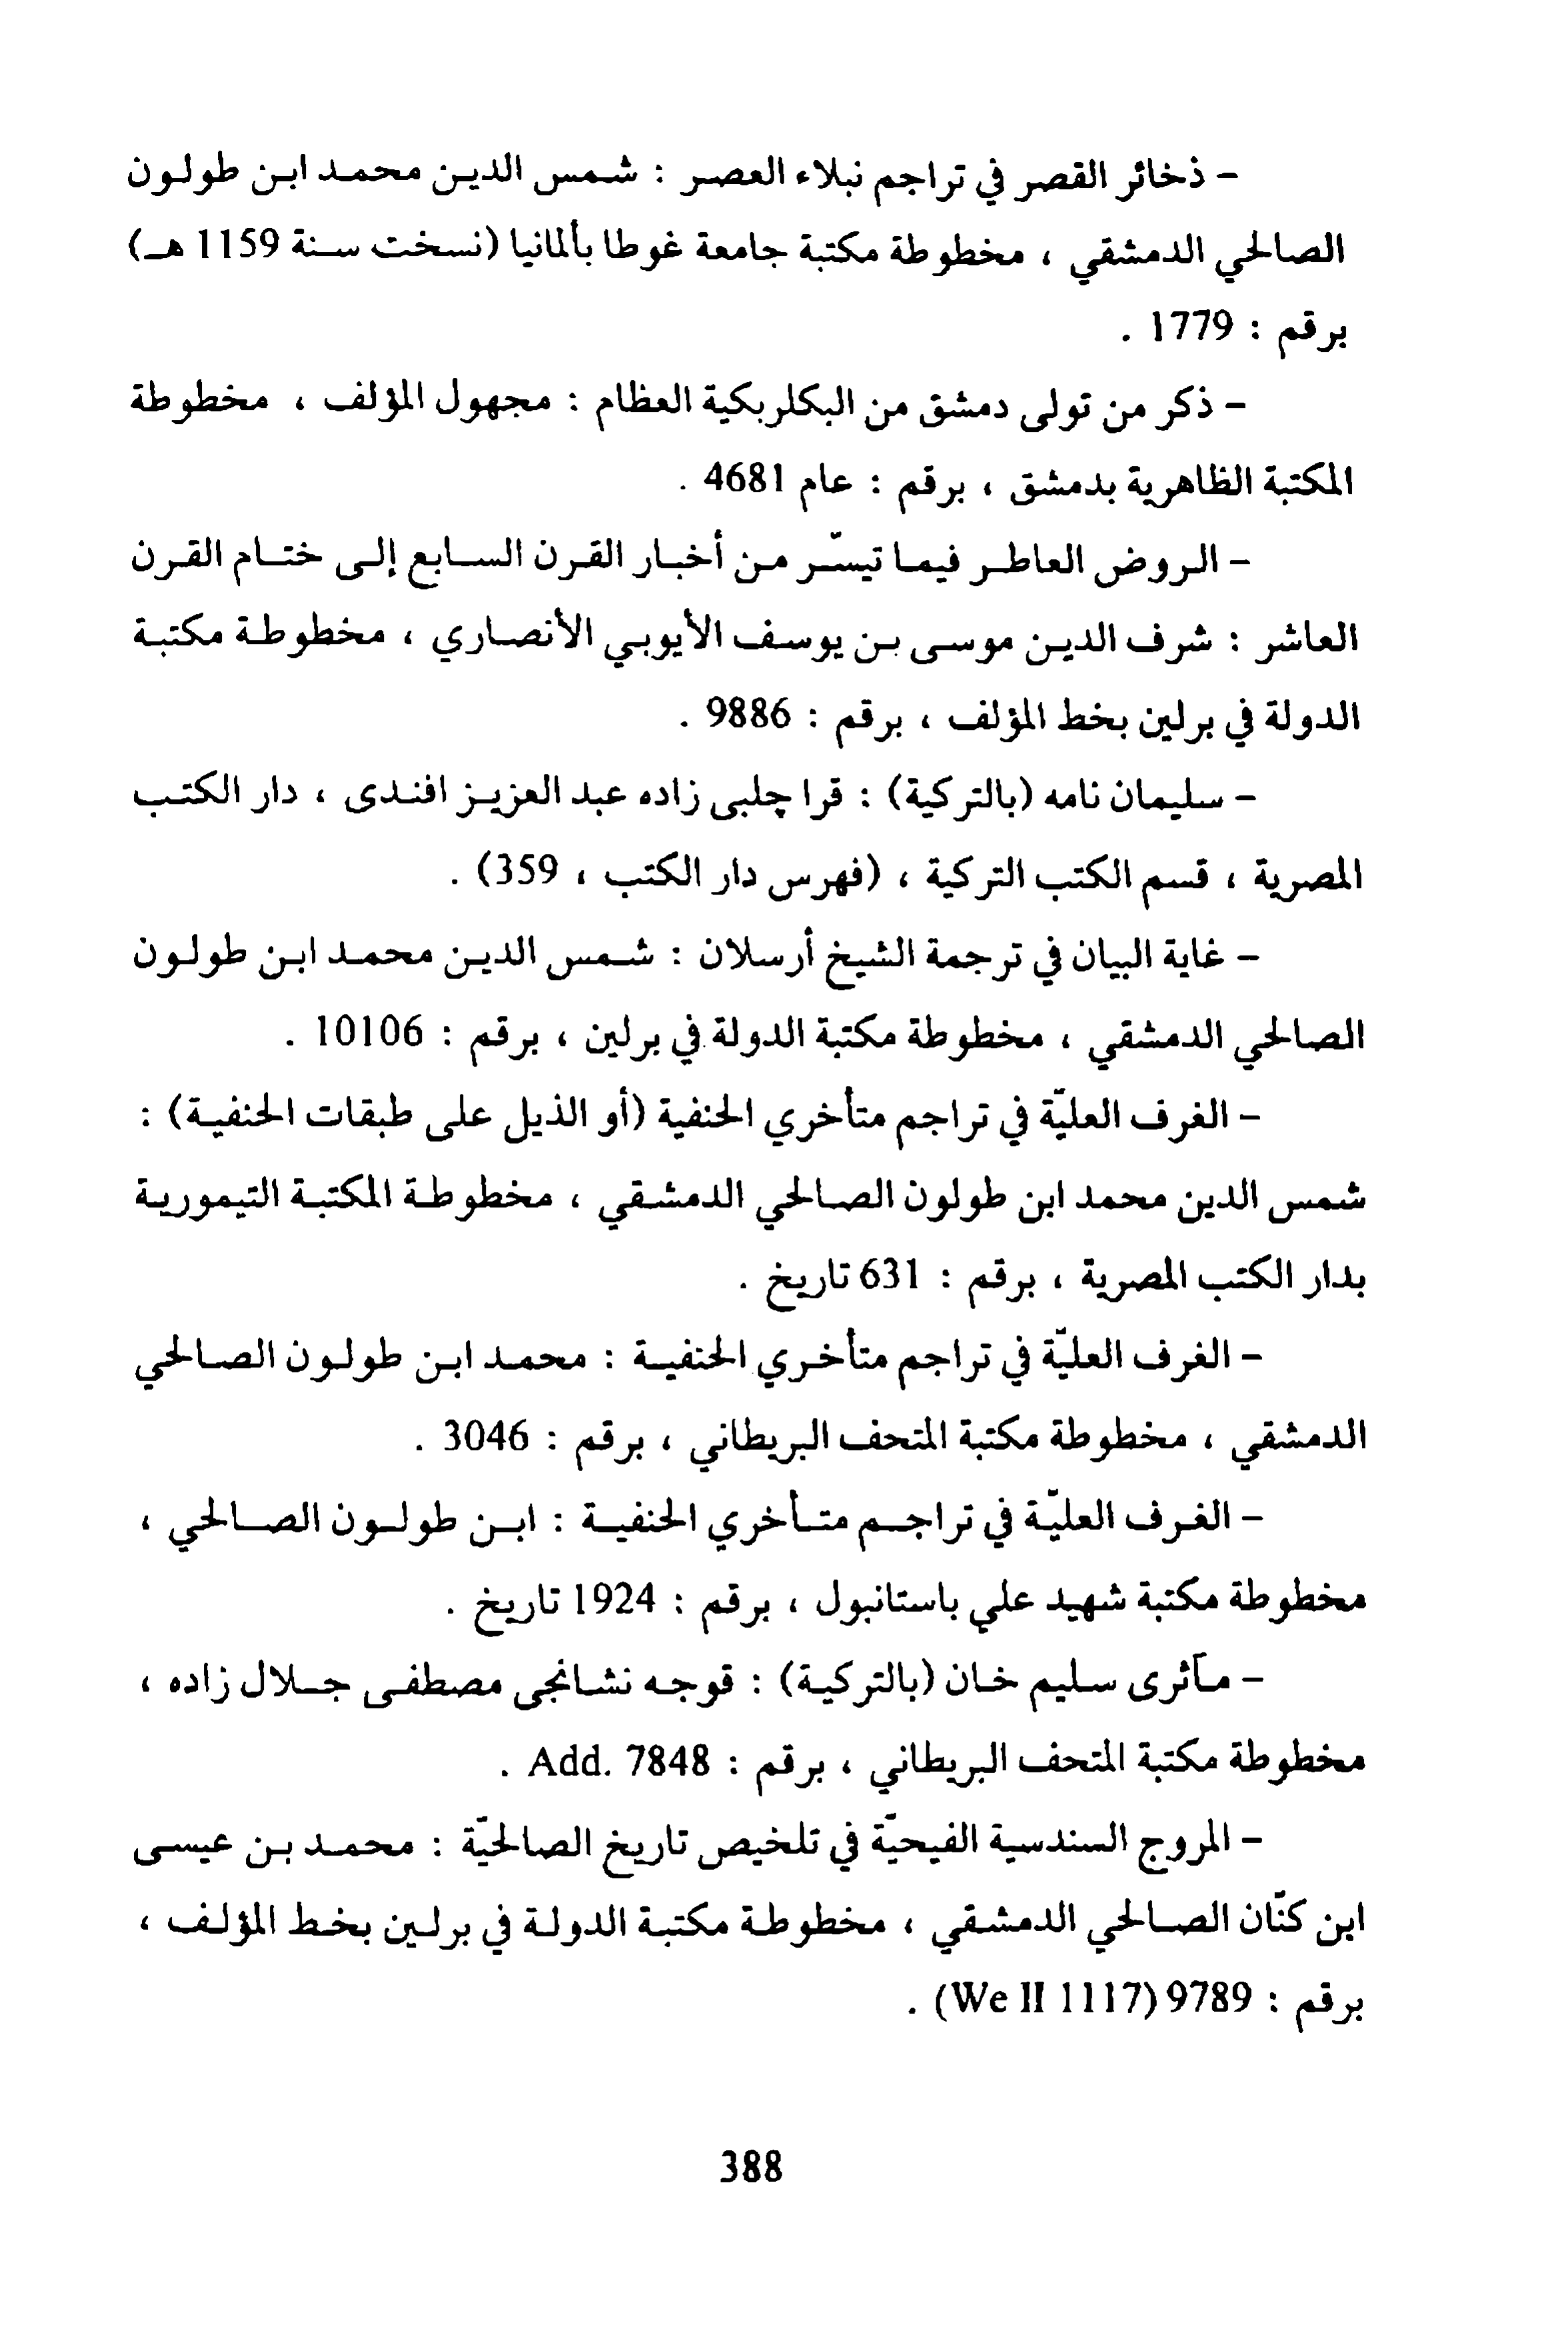 – ذخائر القصر في تراجم نبلاء العصر : شمس الدين محمد ابن طولون
الصالحي الدمشقي ، مخطوطة مكتبة جامعة غوطا بألمانيا (نسخت سنة 1159 هـ)
برقم : 1779 .
– ذكر من تولى دمشق من البكلربكية العظام : مجهول المؤلف ، مخطوطة
المكتبة الظاهرية بدمشق ، برقم : عام 4681 .
– الروض العاطر فيما تيسّر من أخبار القرن السابع إلى ختام القرن
العاشر : شرف الدين موسى بن يوسف الأيوبي الأنصاري ، مخطوطة مكتبة
الدولة في برلين بخط المؤلف ، برقم : 9886 .
– سليمان نامه (بالتركية) : قرا چلبى زاده عبد العزيز افندى ، دار الكتب
المصرية ، قسم الكتب التركية ، (فهرس دار الكتب ، 359) .
– غاية البيان في ترجمة الشيخ أرسلان : شمس الدين محمد ابن طولون
الصالحي الدمشقي ، مخطوطة مكتبة الدولة في برلين ، برقم : 10106 .
– الغرف العليّة في تراجم متأخري الحنفية (أو الذيل على طبقات الحنفية) :
شمس الدين محمد ابن طولون الصالحي الدمشقي ، مخطوطة المكتبة التيمورية
بدار الكتب المصرية ، برقم : 631 تاريخ .
– الغرف العليّة في تراجم متأخري الحنفية : محمد ابن طولون الصالحي
الدمشقي ، مخطوطة مكتبة المتحف البريطاني ، برقم : 3046 .
– الغرف العليّة في تراجم متأخري الحنفية : ابن طولون الصالحي ،
مخطوطة مكتبة شهيد علي باستانبول ، برقم : 1924 تاريخ .
– مآثرى سليم خان (بالتركية) : قوجه نشانجى مصطفى جلال زاده ،
مخطوطة مكتبة المتحف البريطاني ، برقم : Add. 7848 .
– المروج السندسية الفيحيّة في تلخيص تاريخ الصالحيّة : محمد بن عيسى
ابن كنّان الصالحي الدمشقي ، مخطوطة مكتبة الدولة في برلين بخط المؤلف ،
برقم : 9789 (We II 1117) .
388